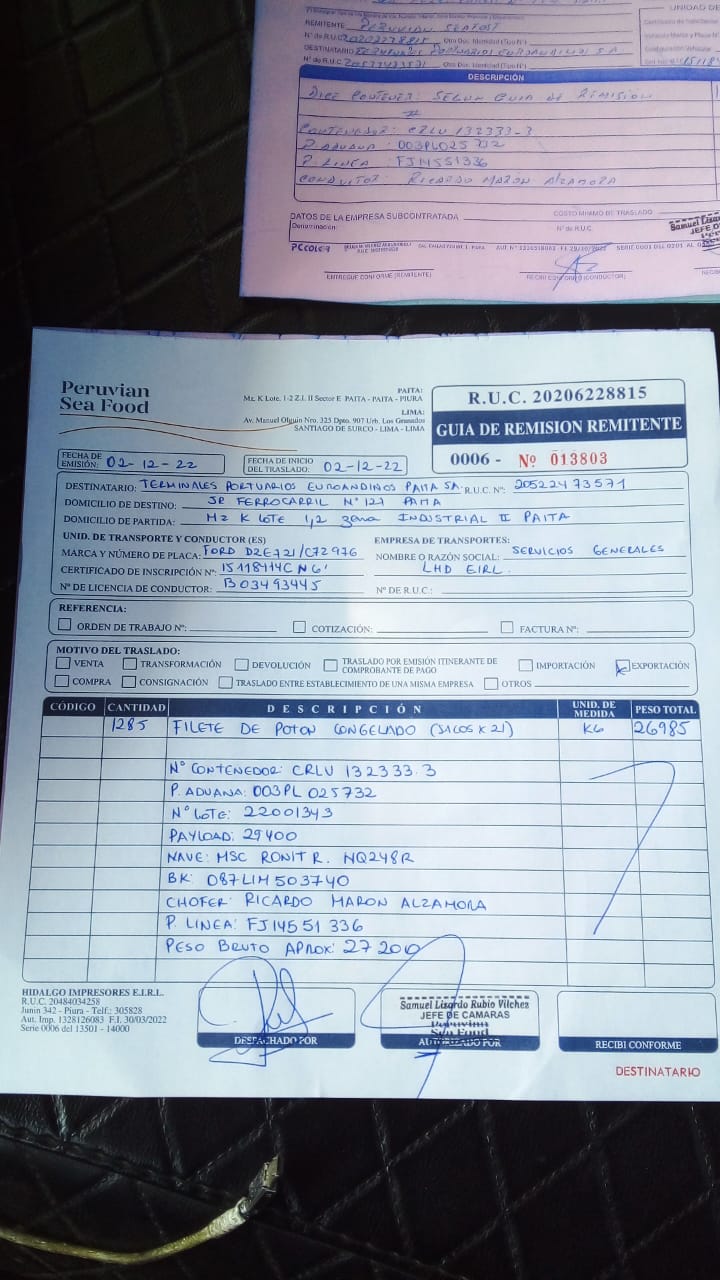 UNIDAD DE
REMITENTE PERUVIAN SEAFOST
N° de R.U.C. Otro Doc. Identidad (Tipo N°)
DESTINATARIO TERMINALES PORTUARIOS EUROANDINOS S.A
N° de R.U.C. Otro Doc. Identidad (Tipo N°)
DESCRIPCIÓN
DICE CONTENER: SEGUN GUIA DE REMISION
CONTENEDOR: CRLU 132333-3
P. ADUANA: 003PL025732
P. LINEA: FJ14551336
CONDUCTOR: RICARDO MARON ALZAMORA
DATOS DE LA EMPRESA SUBCONTRATADA
COSTO MINIMO DE TRASLADO
Denominación:
N° de R.U.C.
Samuel Liza
JEFE D
ENTREGUE CONFORME (REMITENTE)
RECIBI CONFORMO (CONDUCTOR)
Peruvian
Sea Food
PAITA:
Mz. K Lote. 1-2 Z.I. II Sector E PAITA - PAITA - PIURA
LIMA:
Av. Manuel Olguin Nro. 325 Dpto. 907 Urb. Los Granados
SANTIAGO DE SURCO - LIMA - LIMA
R.U.C. 20206228815
GUIA DE REMISION REMITENTE
0006 - Nº 013803
FECHA DE EMISIÓN: 02-12-22
FECHA DE INICIO DEL TRASLADO: 02-12-22
DESTINATARIO: TERMINALES PORTUARIOS EUROANDINOS PAITA SA. R.U.C. Nº: 20522473571
DOMICILIO DE DESTINO: JR FERROCARRIL Nº 127 PAITA
DOMICILIO DE PARTIDA: MZ K LOTE 1,2 zona INDUSTRIAL II PAITA
UNID. DE TRANSPORTE Y CONDUCTOR (ES)
EMPRESA DE TRANSPORTES:
MARCA Y NÚMERO DE PLACA: FORD D2E721/C72976
NOMBRE O RAZÓN SOCIAL: SERVICIOS GENERALES
CERTIFICADO DE INSCRIPCIÓN Nº:
LHD EIRL.
Nº DE LICENCIA DE CONDUCTOR: B03493445
Nº DE R.U.C.:
REFERENCIA:
ORDEN DE TRABAJO Nº: COTIZACIÓN: FACTURA Nº:
MOTIVO DEL TRASLADO:
VENTA TRANSFORMACIÓN DEVOLUCIÓN TRASLADO POR EMISIÓN ITINERANTE DE COMPROBANTE DE PAGO IMPORTACIÓN EXPORTACIÓN
COMPRA CONSIGNACIÓN TRASLADO ENTRE ESTABLECIMIENTO DE UNA MISMA EMPRESA OTROS
CÓDIGO CANTIDAD DESCRIPCIÓN UNID. DE MEDIDA PESO TOTAL
1285 FILETE DE POTON CONGELADO (SACOS X 21) KG 26985
Nº CONTENEDOR: CRLU 132333.3
P. ADUANA: 003PL 025732
Nº LOTE: 22001343
PAYLOAD: 29400
NAVE: MSC RONIT R. NQ248R
BK: 087LIM503740
CHOFER: RICARDO MARON ALZAMORA
P. LINEA: FJ1455 1 336
PESO BRUTO APROX: 27 200
HIDALGO IMPRESORES E.I.R.L.
R.U.C. 20484034258
Junin 342 - Piura - Telf.: 305828
Aut. Imp. 1328126083 F.I. 30/03/2022
Serie 0006 del 13501 - 14000
DESPACHADO POR
Samuel Lizardo Rubio Vilchez
JEFE DE CAMARAS
Peruvian
Sea Food
AUTORIZADO POR
RECIBI CONFORME
DESTINATARIO